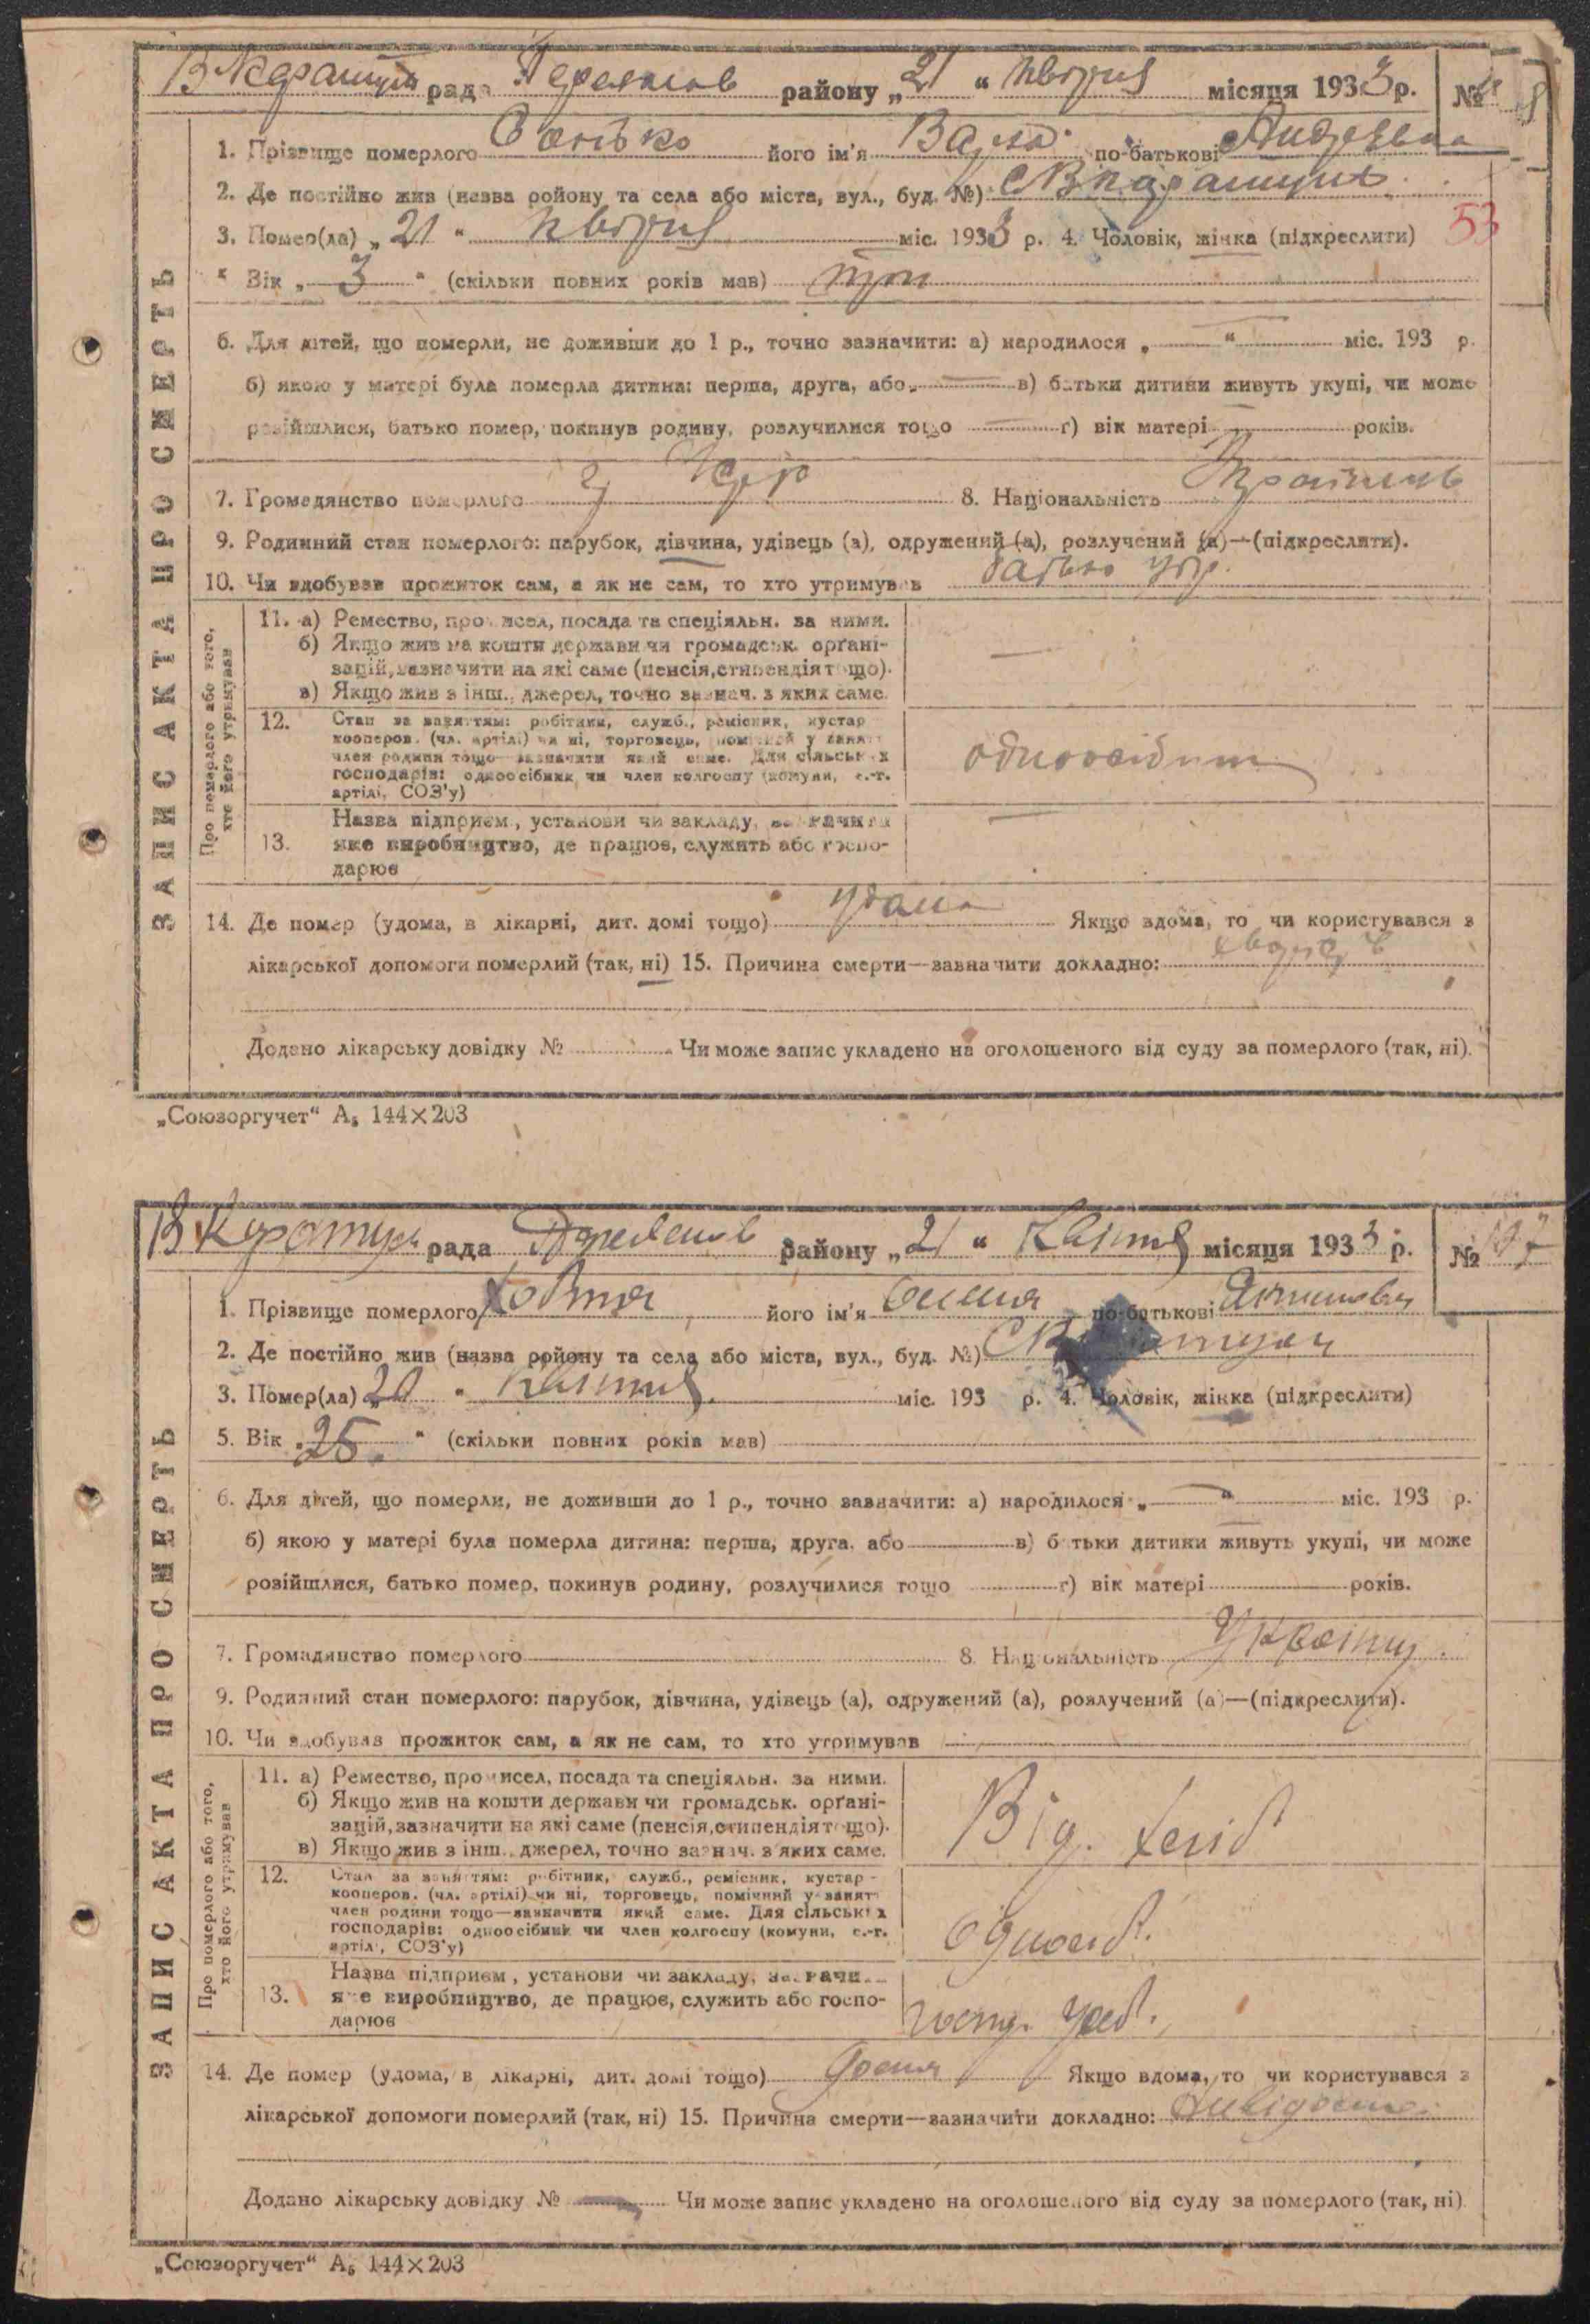 В Каратул рада Переяслов району „21“ квітня місяця 1933 р. №
1. Прізвище померлого його ім'я по-батькові Андреевна
2. Де постійно жив (назва району та села або міста, вул., буд. №) С В Каратуль
3. Помер(ла) „21“ квітня міс. 1933 р. 4. Чоловік, жінка (підкреслити) 53
Вік „3“ (скільки повних років мав) три
6. Для дітей, що померли, не доживши до 1 р., точно зазначити: а) народилося „—“ міс. 193 р.
б) якою у матері була померла дитина: перша, друга, або — в) батьки дитини живуть укупі, чи може
розійшлися, батько помер, покинув родину, розлучилися тощо — г) вік матері — років.
7. Громадянство померлого 8. Національність
9. Родинний стан померлого: парубок, дівчина, удівець (а), одружений (а), розлучений (а)—(підкреслити).
10. Чи здобував прожиток сам, а як не сам, то хто утримував батько
ЗАПИС АКТА ПРО СМЕРТЬ
Про померлого або того, хто його утримував
11. а) Ремество, промисел, посада та спеціяльн. за ними.
б) Якщо жив на кошти держави чи громадськ. орґані-
зацій, зазначити на які саме (пенсія, стипендія тощо).
в) Якщо жив з інш., джерел, точно зазнач. з яких саме.
12. Стан за заняттям: робітник, служб., ремісник, кустар -
кооперов. (чл. артілі) чи ні, торговець, помічний у занят.
член родини тощо—зазначити який саме. Для сільських
господарів: одноосібник чи член колгоспу (комуни, с.-г.
артілі, СОЗ'у)
одноосібник
13. Назва підприєм., установи чи закладу, зазначити
яке виробництво, де працює, служить або госпо-
дарює
14. Де помер (удома, в лікарні, дит. домі тощо) удома Якщо вдома, то чи користувався з
лікарської допомоги померлий (так, ні) 15. Причина смерти—зазначити докладно:
Додано лікарську довідку № Чи може запис укладено на оголошеного від суду за померлого (так, ні).
„Союзоргучет“ А5 144×203
В Каратул рада Переяслов району „21“ Квітня місяця 1933 р. №
1. Прізвище померлого його ім'я по-батькові
2. Де постійно жив (назва району та села або міста, вул., буд. №) С В
3. Помер(ла) „20“ квітня міс. 193 р. 4. Чоловік, жінка (підкреслити)
5. Вік „25“ (скільки повних років мав)
6. Для дітей, що померли, не доживши до 1 р., точно зазначити: а) народилося „—“ міс. 193 р.
б) якою у матері була померла дитина: перша, друга, або в) батьки дитини живуть укупі, чи може
розійшлися, батько помер, покинув родину, розлучилися тощо г) вік матері років.
7. Громадянство померлого 8. Національність Україн
9. Родинний стан померлого: парубок, дівчина, удівець (а), одружений (а), розлучений (а)—(підкреслити).
10. Чи здобував прожиток сам, а як не сам, то хто утримував
ЗАПИС АКТА ПРО СМЕРТЬ
Про померлого або того, хто його утримував
11. а) Ремество, промисел, посада та спеціяльн. за ними.
б) Якщо жив на кошти держави чи громадськ. орґані-
зацій, зазначити на які саме (пенсія, стипендія тощо).
в) Якщо жив з інш., джерел, точно зазнач. з яких саме.
Від. хліб
12. Стан за заняттям: робітник, служб., ремісник, кустар -
кооперов. (чл. артілі) чи ні, торговець, помічний у занят.
член родини тощо—зазначити який саме. Для сільських
господарів: одноосібник чи член колгоспу (комуни, с.-г.
артілі, СОЗ'у)
Одноосіб.
13. Назва підприєм., установи чи закладу, зазначи
яке виробництво, де працює, служить або госпо-
дарює
14. Де помер (удома, в лікарні, дит. домі тощо) Дома Якщо вдома, то чи користувався з
лікарської допомоги померлий (так, ні) 15. Причина смерти—зазначити докладно: Невідома
Додано лікарську довідку № Чи може запис укладено на оголошеного від суду за померлого (так, ні)
„Союзоргучет“ А5 144×203